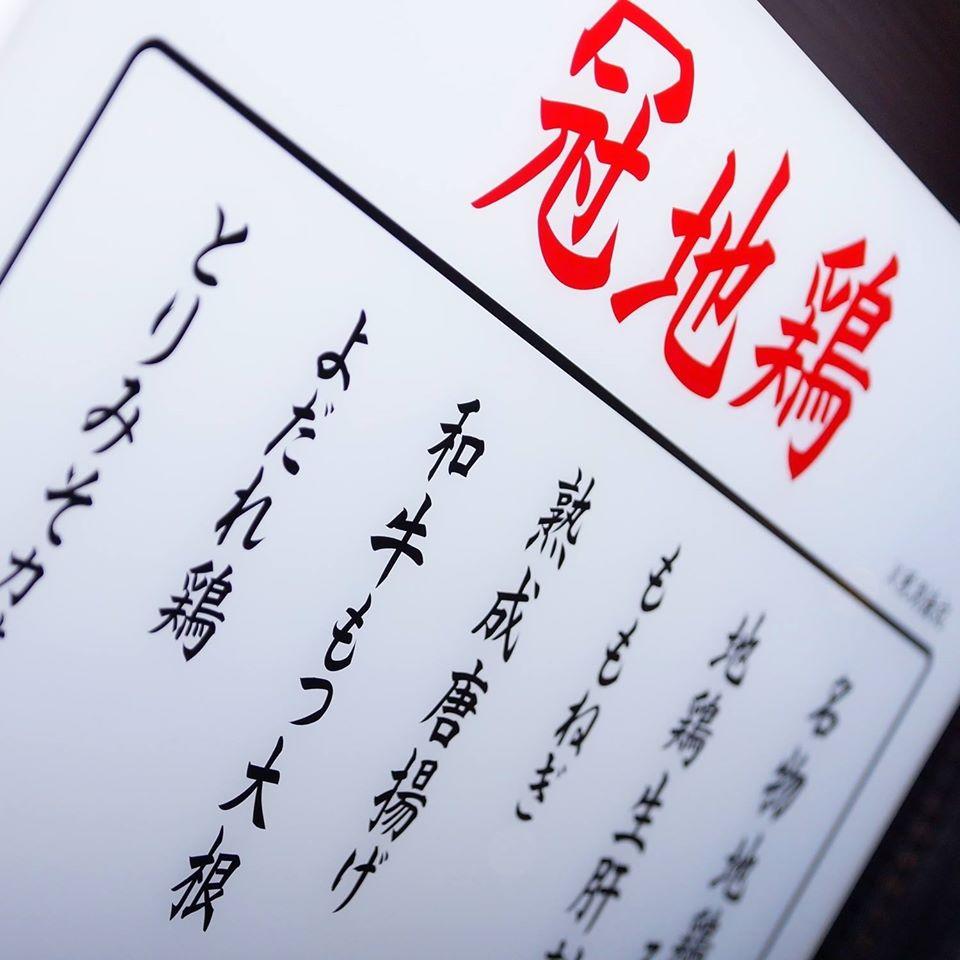 冠地鶏
名物地鶏
地鶏生肝
ももねぎ
熟成唐揚げ
和牛もつ大根
よだれ鶏
とりみそ